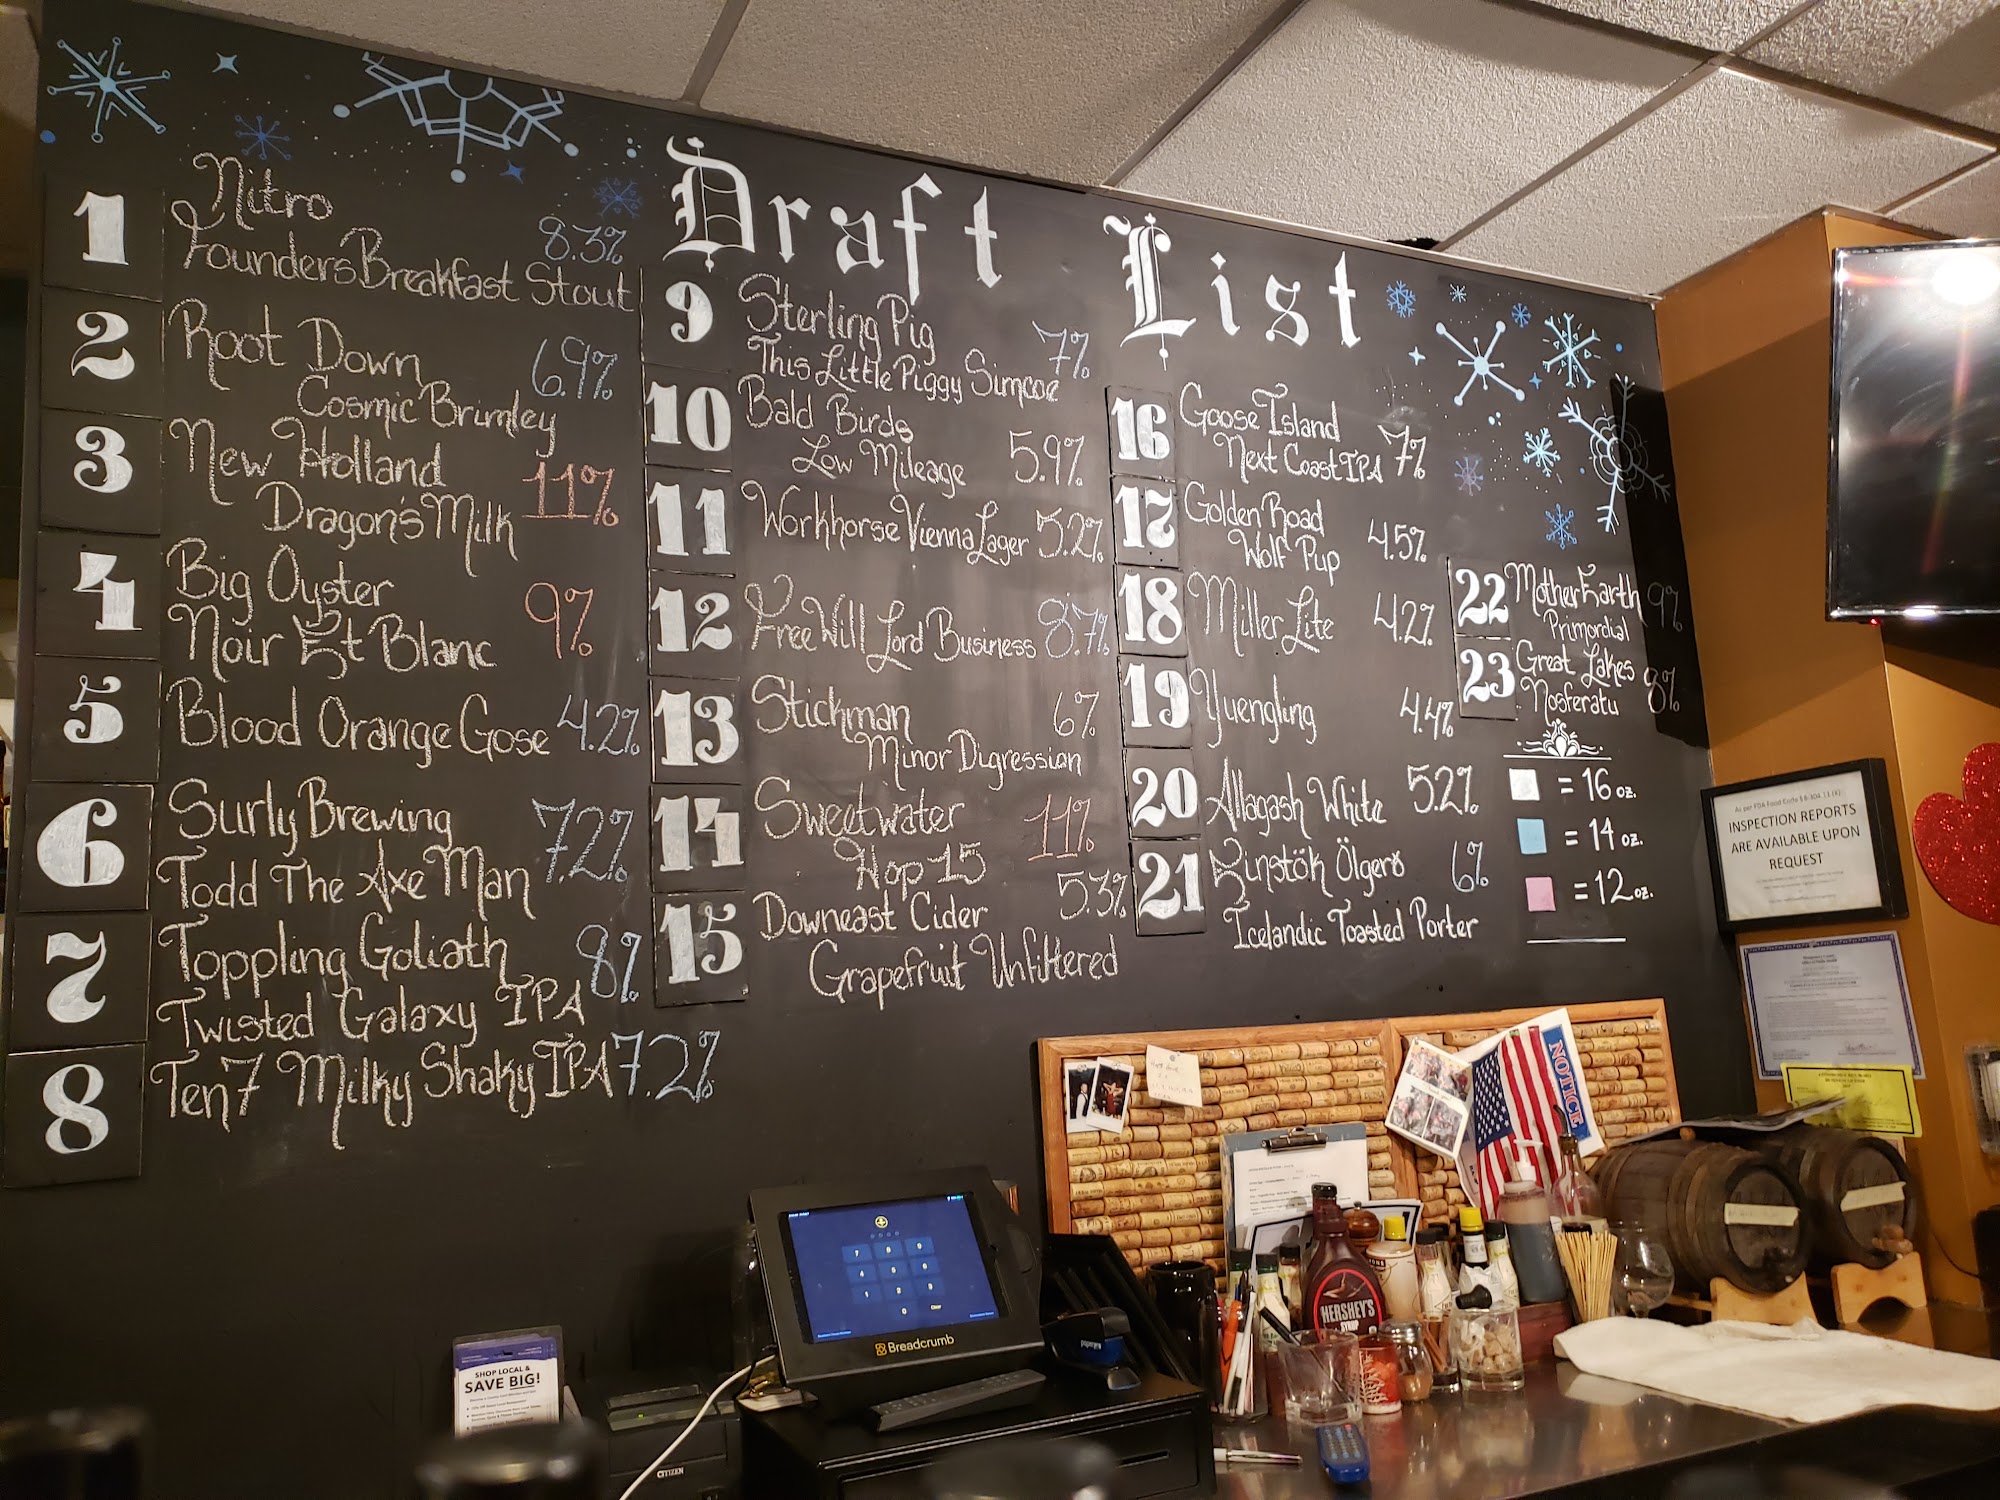 Draft List
1
Nitro
Founders Breakfast Stout 8.3%
2
Root Down 6.9%
Cosmic Brimley
3
New Holland 11%
Dragon's Milk
4
Big Oyster 9%
Noir Et Blanc
5
Blood Orange Gose 4.2%
6
Surly Brewing 7.2%
Todd The Axe Man
7
Toppling Goliath 8%
Twisted Galaxy IPA
8
Ten7 Milky Shaky IPA 7.2%
9
Sterling Pig 7%
This Little Piggy Simcoe
10
Bald Birds 5.9%
Low Mileage
11
Workhorse Vienna Lager 5.2%
12
Free Will Lord Business 8.7%
13
Stickman 6%
Minor Digression
14
Sweetwater 11%
Hop 15
15
Downeast Cider 5.3%
Grapefruit Unfiltered
16
Goose Island
Next Coast IPA 7%
17
Golden Road 4.5%
Wolf Pup
18
Miller Lite 4.2%
19
Yuengling 4.4%
20
Allagash White 5.2%
21
Einstök Ölgerð 6%
Icelandic Toasted Porter
22
Mother Earth 9%
Primordial
23
Great Lakes 8%
Nosferatu
= 16 oz.
= 14 oz.
= 12 oz.
INSPECTION REPORTS
ARE AVAILABLE UPON
REQUEST
NOTICE
HERSHEY'S
SYRUP
7 8 9
4 5 6
1 2 3
0 Clear
Breadcrumb
SHOP LOCAL &
SAVE BIG!
CITIZEN